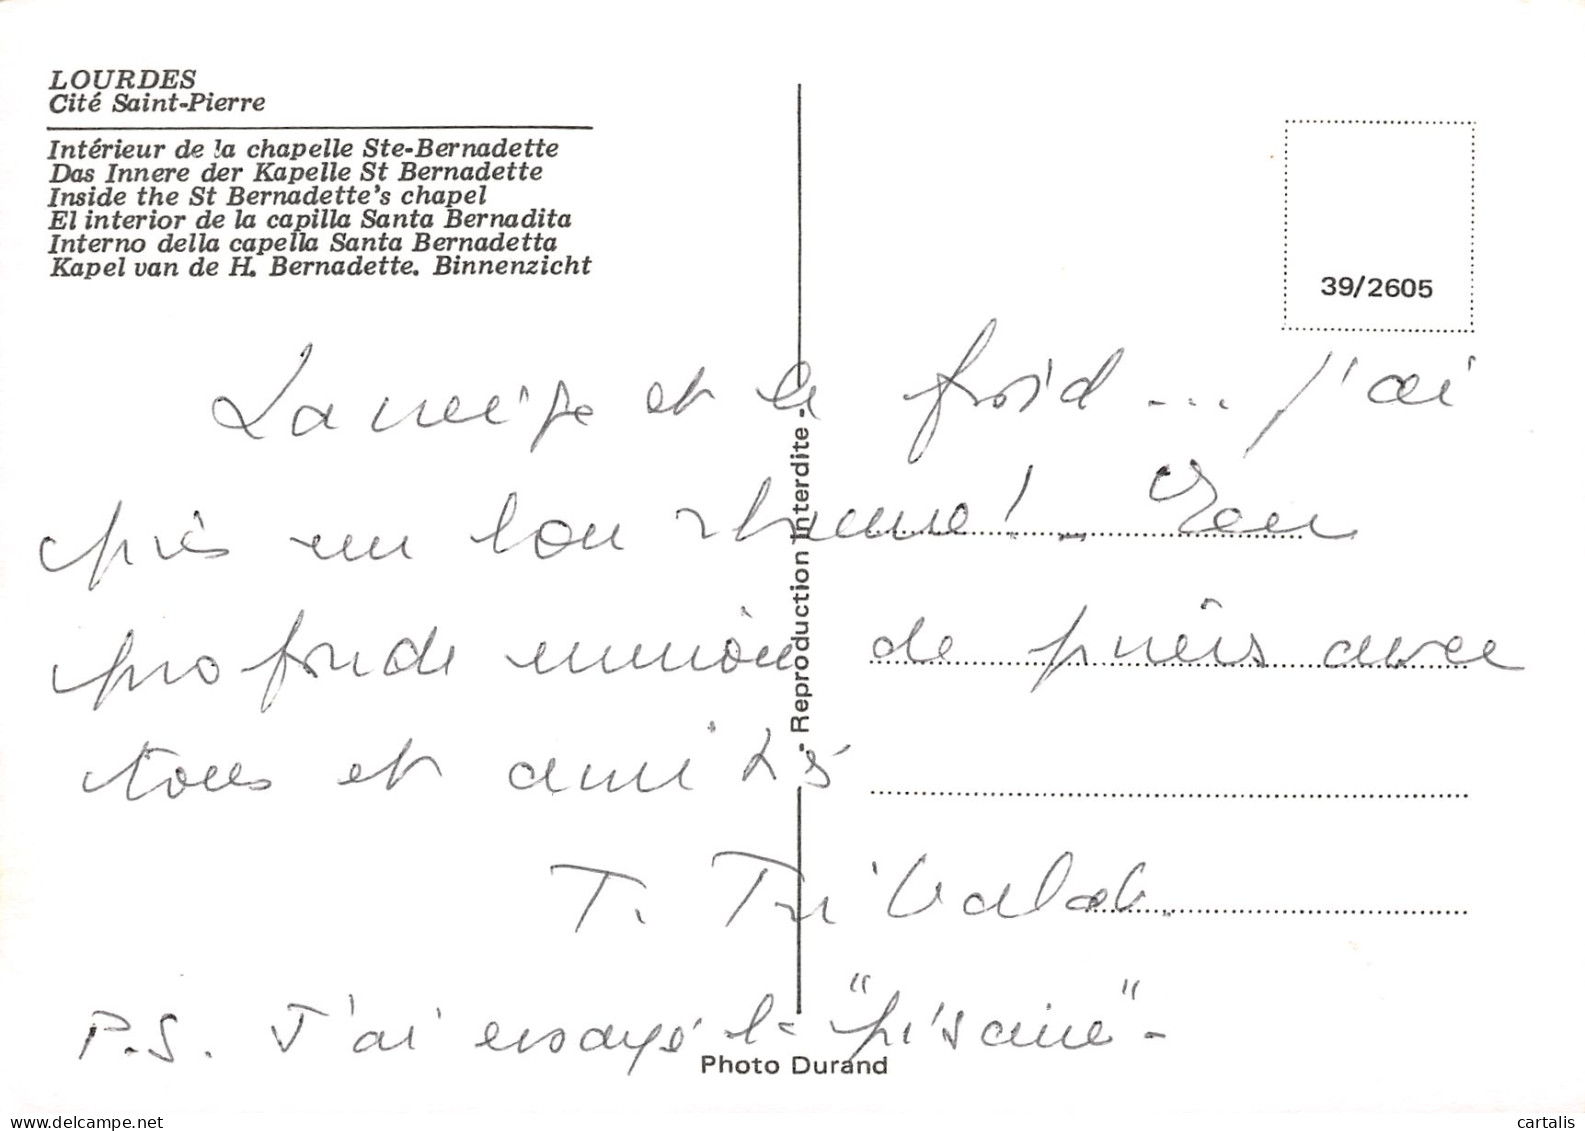 LOURDES
Cité Saint-Pierre
Intérieur de la chapelle Ste-Bernadette
Das Innere der Kapelle St Bernadette
Inside the St Bernadette's chapel
El interior de la capilla Santa Bernadita
Interno della capella Santa Bernadetta
Kapel van de H. Bernadette. Binnenzicht
39/2605
La neige et le froid ... j'ai
pris un bon rhume! -
profonde union de prières avec
tous et amitiés
T.
P.S. J'ai essayé la "piscine" -
- Reproduction Interdite -
Photo Durand
www.delcampe.net
cartalis